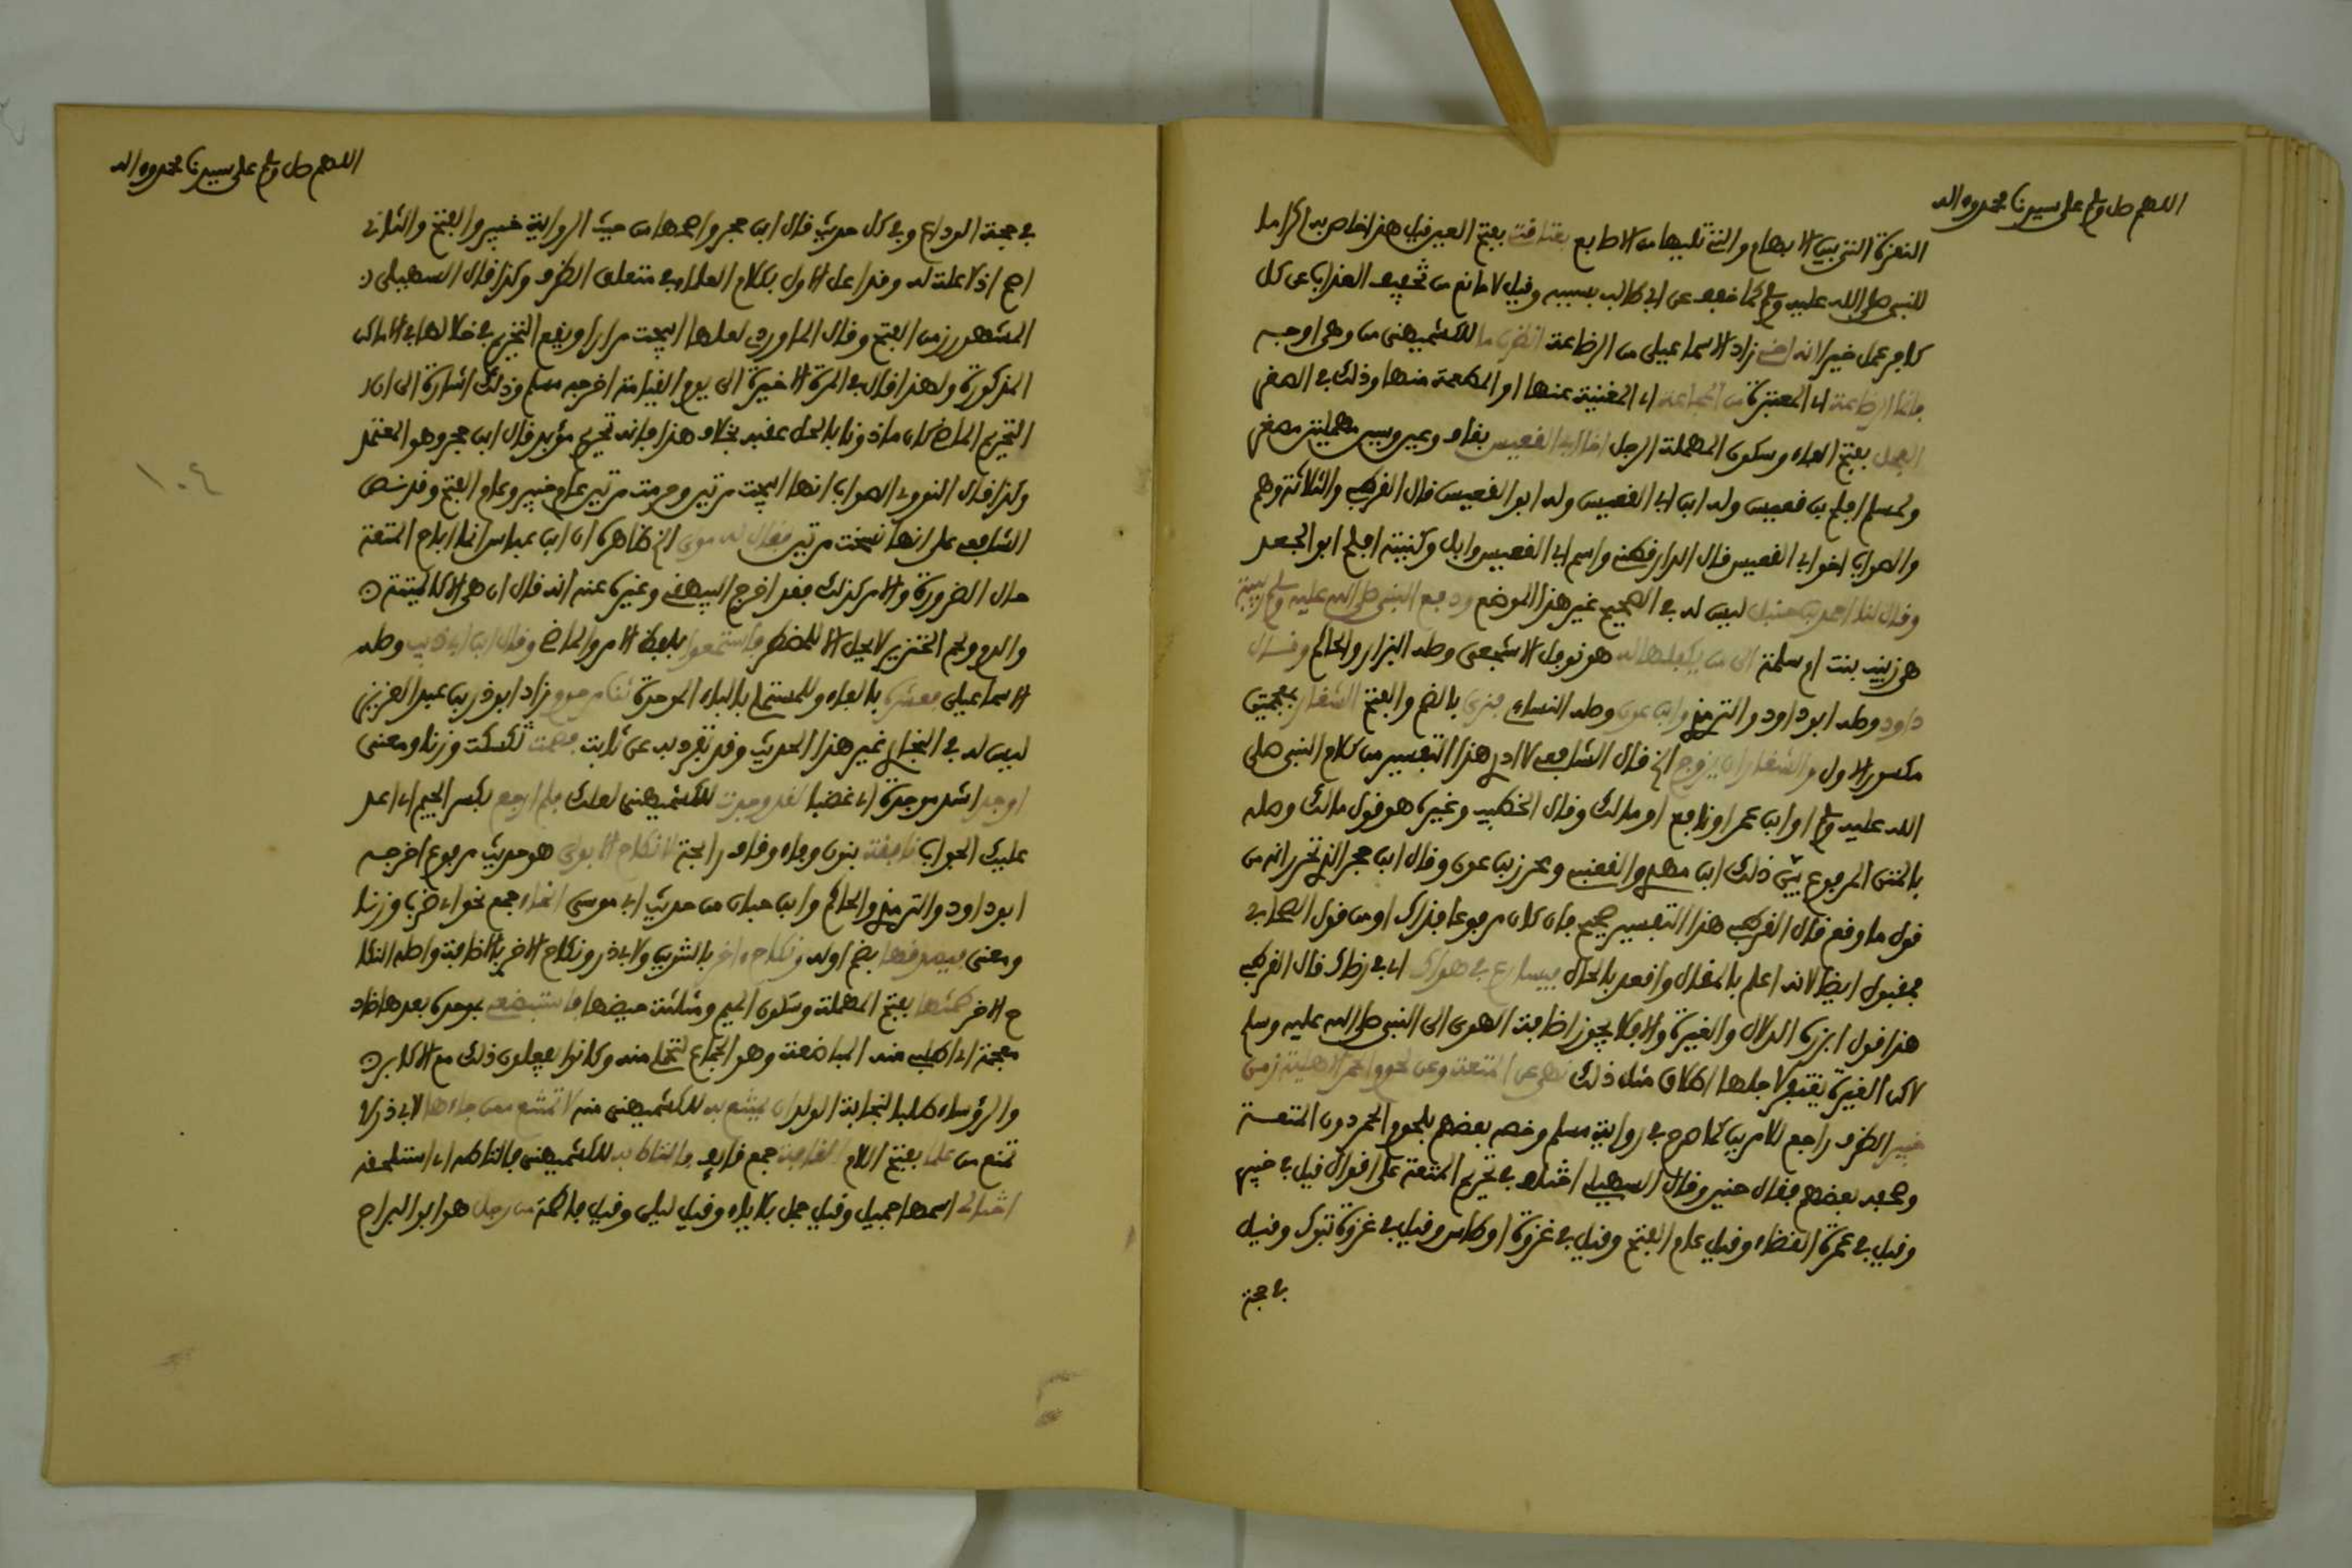 اللهم صل وسلم على سيدنا محمد وءاله
النقرة التي بين الابهام والتي تليها من الاصابع بعتاقتي بفتح العين قيل هذا خاص به اكراما
للنبي صلى الله عليه وسلم كما خفف عن ابي طالب بسببه وقيل لا مانع من تخفيف العذاب عن كل
كافر عمل خيرا انه اخي زاد الاسماعيلي من الرضاعة انظرن ما للكشميهني من وهي اوجه
فانما الرضاعة اي المعتبرة من المجاعة اي المغنية عنها او المطعمة منها وذلك في الصغر
الفحل بفتح الفاء وسكون المهملة الرجل اخا ابي القعيس بقاف وعين وسين مهملتين مصغر
ولمسلم افلح بن قعيس وله ابن ابي القعيس وله ابو القعيس قال القرطبي والثلاثة وهم
والصواب اخو ابي القعيس قال الدارقطني واسم ابي القعيس وايل وكنيته افلح ابو الجعد
وقال لنا احمد بن حنبل ليس له في الصحيح غير هذا الموضع ودفع النبي صلى الله عليه وسلم ربيبة
هي زينب بنت ام سلمة الى من يكفلها له هو نوفل الاشجعي وصله البزار والحاكم وقال
داود وصله ابو داود والترمذي وابن عون وصله النساءي فنرى بالضم والفتح الشغار بمعجمتين
مكسور الاول والشغار ان يزوج الخ قال الشافعي لا ادري هذا التفسير من كلام النبي صلى
الله عليه وسلم او ابن عمر او نافع او مالك وقال الخطيب وغيره هو قول مالك وصله
بالمتن المرفوع بين ذلك ابن مهدي والقعنبي ومحرز بن عون وقال ابن حجر الذي تحرر انه من
قول نافع قال القرطبي هذا التفسير صحيح فان كان مرفوعا فذاك او من قول الصحابي
فمقبول ايضا لانه اعلم بالمقال واقعد بالحال يسارع في هواك اي في رضاك قال القرطبي
هذا قول ابرزه الدلال والغيرة والا فلا يجوز اضافة الهوى الى النبي صلى الله عليه وسلم
لاكن الغيرة يغتفر لاجلها اطلاق مثل ذلك نهى عن المتعة وعن لحوم الحمر الاهلية زمن
خيبر الظرف راجع للامرين كما صرح في رواية مسلم وخصه بعضهم بلحوم الحمر دون المتعة
وصحفه بعضهم فقال حنين وقال السهيلي اختلف في تحريم المتعة على اقوال قيل في خيبر
وقيل في عمرة القضاء وقيل عام الفتح وقيل في غزوة اوطاس وقيل في غزوة تبوك وقيل
في حجة
اللهم صل وسلم على سيدنا محمد وءاله
في حجة الوداع وفي كل حديث قال ابن حجر واصحها من حيث الرواية خيبر والفتح والثاني
اصح اذ لا علة له وقد اعل الاول بكلام العلماء في متعلق الظرف وكذا قال السهيلي ان
المشهور زمن الفتح وقال الماوردي لعلها ابيحت مرارا ويقع التحريم في خلالها في الاماكن
المذكورة ولهذا قال في المرة الاخيرة الى يوم القيامة اخرجه مسلم وذلك اشارة الى ان
التحريم الماضي كان ماذونا بالحل عقبه بخلاف هذا فانه تحريم مؤبد قال ابن حجر وهو المعتمد
وكذا قال النووي الصواب انها ابيحت مرتين وحرمت مرتين عام خيبر وعام الفتح وقد نص
الشافعي على انها نسخت مرتين فقال له مولى الخ ظاهره ان ابن عباس انما اباح المتعة
حال الضرورة والامر كذلك فقد اخرج البيهقي وغيره عنه انه قال ان هي الا كالميتة
والدم ولحم الخنزير لا يحل الا للمضطر فاستمتعوا بلفظ الامر والماضي وقال ابن ابي ذيب وصله
الاسماعيلي فعشرة بالفاء وللمستملي بالباء الموحدة ثنا مرحوم زاد ابو ذر بن عبد العزيز
ليس له في البخاري غير هذا الحديث وقد تفرد به عن ثابت فصمت كسكت وزنا ومعنى
اوجد اشد موجدة اي غضبا لقد وجدت للكشميهني لعلك فلم ارجع بكسر الجيم اي اعد
عليك الجواب نافقة بنون وفاء وقاف رايجة لا نكاح الا بولي هو حديث مرفوع اخرجه
ابو داود والترمذي والحاكم وابن حبان من حديث ابي موسى انحاء جمع نحو اي ضرب وزنا
ومعنى فيصدقها بضم اوله ونكاح ءاخر بالتنوين ولابي ذر ونكاح الاخر بالاضافة واصله النكا
ح الاخر طمثها بفتح المهملة وسكون الميم ومثلثة حيضها فاستبضعي بموحدة بعدها ضاد
معجمة اي اطلبي منه المباضعة وهو الجماع لتحملي منه وكانوا يفعلون ذلك مع الاكابر
والرؤساء طلبا لنجابة الولد ان يمتنع به للكشميهني منه لا تمتنع ممن جاءها لابي ذر لا
تمنع من علما بفتح اللام القافة جمع قايف فالتاط به للكشميهني فالتاطه اي استلحقه
اختا لي اسمها جميل وقيل جمل بلا ياء وقيل ليلى وقيل فاطمة من رجل هو ابو البداح
١٠٤